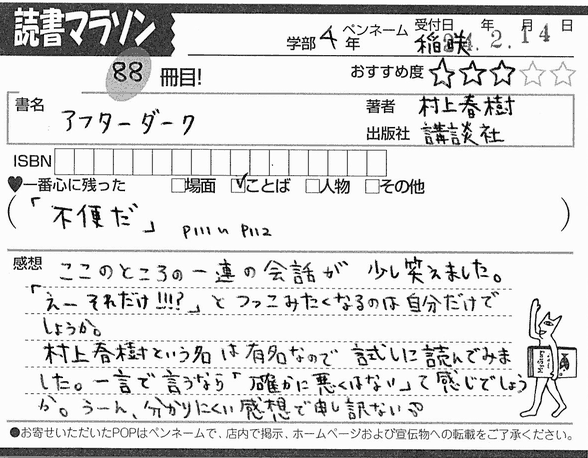 読書マラソン
学部 4年 ペンネーム 稲咲 受付日 年 月 日 .2.14
88 冊目!
おすすめ度 ☆☆☆☆☆
書名 アフターダーク
著者 村上春樹
出版社 講談社
ISBN
♥一番心に残った □場面 ☑ことば □人物 □その他
(「不便だ」 P111〜P112 )
感想 ここのところの一連の会話が 少し笑えました。
「えー それだけ!!!?」と ツッコみたくなるのは自分だけで
しょうか。
村上春樹という名は有名なので 試しに読んでみま
した。一言で言うなら「確かに悪くはない」って感じでしょう
か。うーん、分かりにくい感想で申し訳ない
●お寄せいただいたPOPはペンネームで、店内で掲示、ホームページおよび宣伝物への転載をご了承ください。